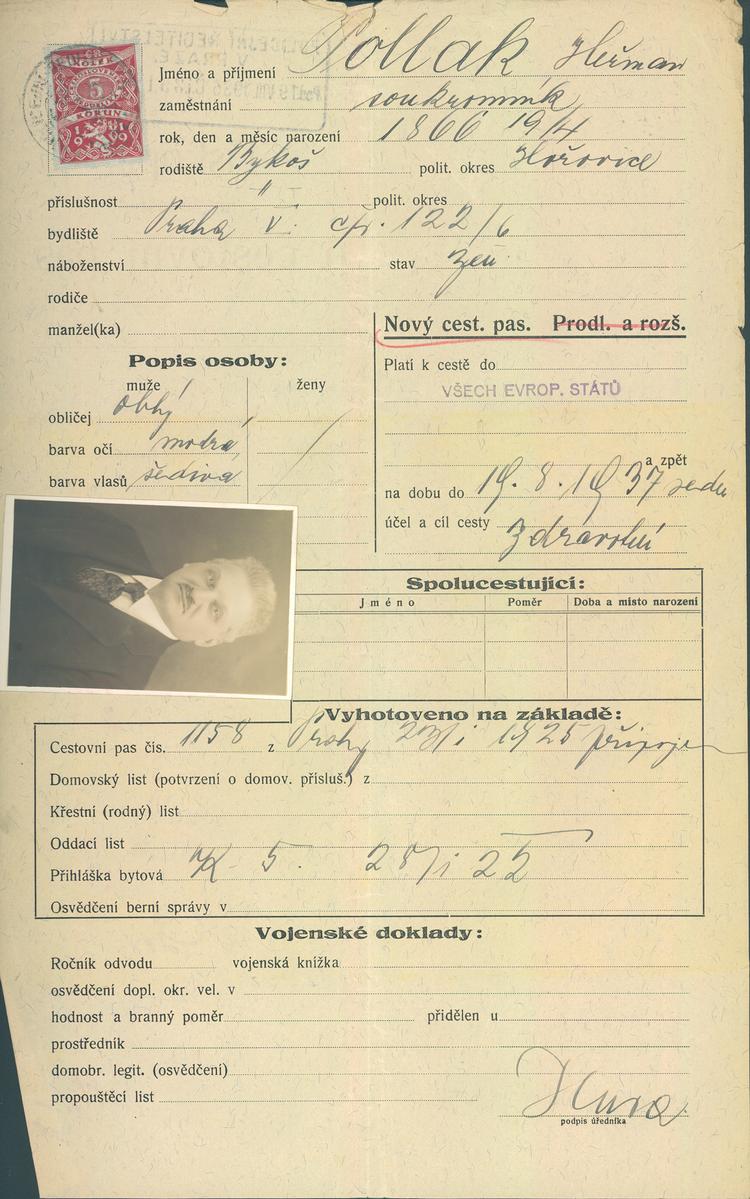 Jméno a příjmení Pollak Heřman
zaměstnání soukromník
rok, den a měsíc narození 1866 19/4
rodiště Bykoš polit. okres Hořovice
příslušnost " polit. okres
bydliště Praha V. čp. 122/6
náboženství stav žen.
rodiče
manžel(ka)
Nový cest. pas. Prodl. a rozš.
Popis osoby:
muže ženy
obličej oblý
barva očí modrá
barva vlasů šedivá
Platí k cestě do
VŠECH EVROP. STÁTŮ
a zpět
na dobu do 19. 8. 1937
účel a cíl cesty Zdravotní
Spolucestující:
Jméno Poměr Doba a místo narození
Vyhotoveno na základě:
Cestovní pas čís. 1158 z Prahy 23/I 1925 připoje
Domovský list (potvrzení o domov. přísluš.) z
Křestní (rodný) list
Oddací list
Přihláška bytová K 5.
Osvědčení berní správy v
Vojenské doklady:
Ročník odvodu vojenská knížka
osvědčení dopl. okr. vel. v
hodnost a branný poměr přidělen u
prostředník
domobr. legit. (osvědčení)
propouštěcí list
podpis úředníka